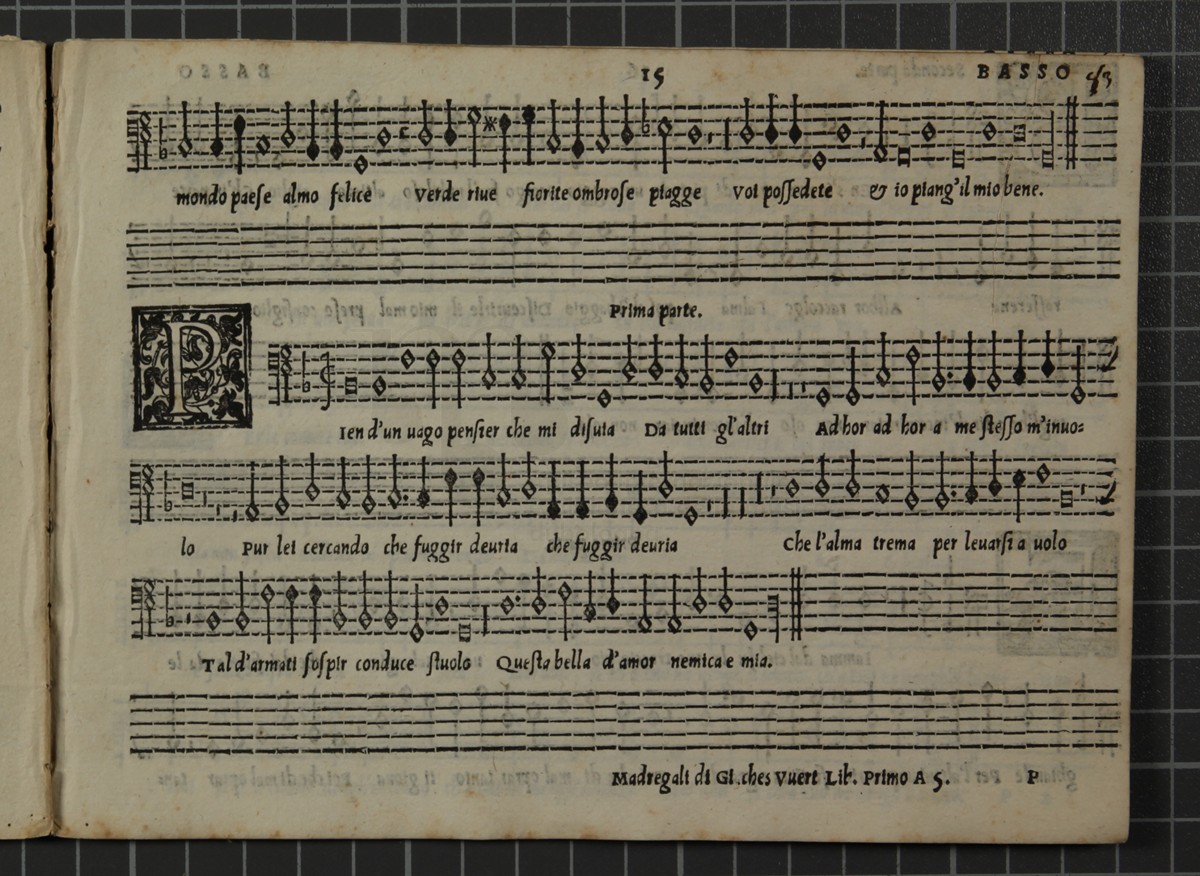 15 BASSO 43
mondo paese almo felice verde riue fiorite ombrose piagge voi possedete & io piang'il mio bene.
Prima parte.
PIen d'un uago pensier che mi disuia Da tutti gl'altri Ad hor ad hor a me stesso m'inuo=
lo Pur lei cercando che fuggir deuria che fuggir deuria Che l'alma trema per leuarsi a uolo
Tal d'armati sospir conduce stuolo Questa bella d'amor nemica e mia.
Madregali di Gi.ches Vuert Lib. Primo A 5. P